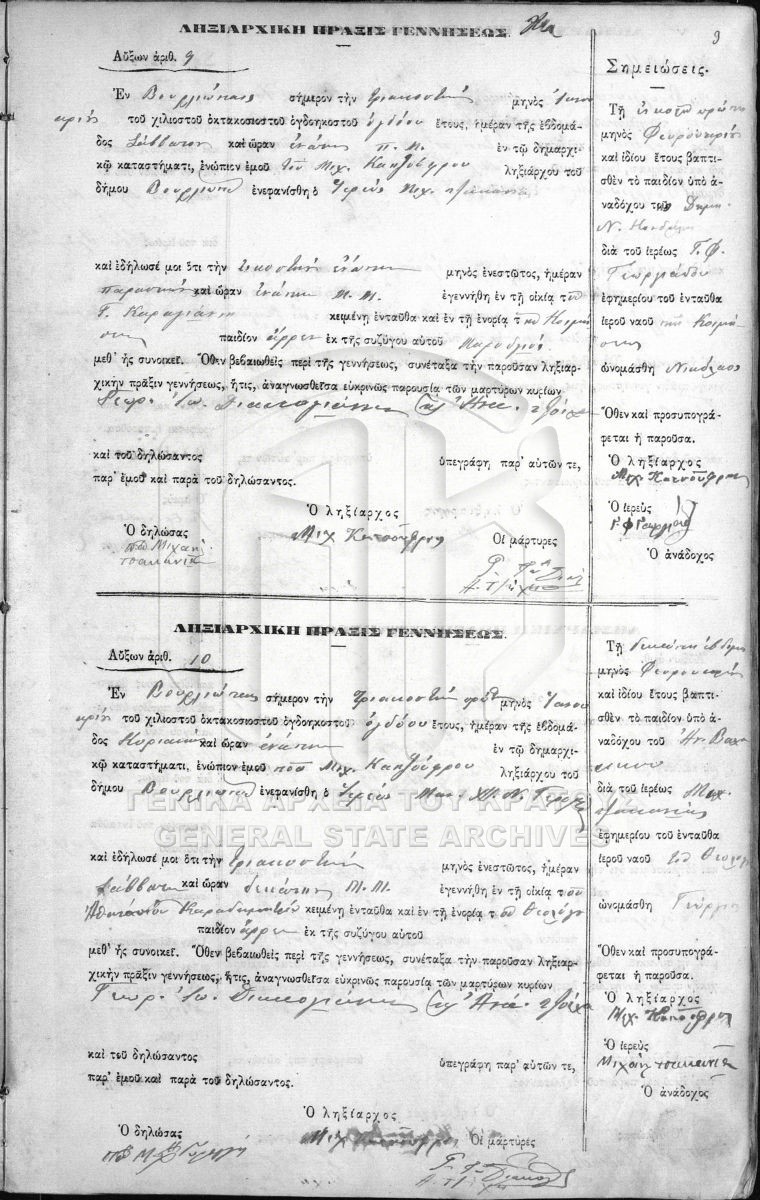 ΛΗΞΙΑΡΧΙΚΗ ΠΡΑΞΙΣ ΓΕΝΝΗΣΕΩΣ.
9
Αὔξων ἀριθ. 9
Ἐν Βουρλιώταις σήμερον τὴν τριακοστὴν μηνὸς Ἰανου
αρίου τοῦ χιλιοστοῦ ὀκτακοσιοστοῦ ὀγδοηκοστοῦ ὀγδόου ἔτους, ἡμέραν τῆς ἑβδομά-
δος Σάββατον καὶ ὥραν ἐνάτην π. μ. ἐν τῷ δημαρχι-
κῷ καταστήματι, ἐνώπιον ἐμοῦ τοῦ Μιχ. Κατζούφρου ληξιάρχου τοῦ
δήμου ἐνεφανίσθη ὁ Ἱερεὺς Μιχ.
καὶ ἐδήλωσέ μοι ὅτι τὴν εἰκοστὴν ἐνάτην μηνὸς ἐνεστῶτος, ἡμέραν
παρασκευὴν καὶ ὥραν ἐνάτην Μ. Μ. ἐγεννήθη ἐν τῇ οἰκίᾳ τοῦ
Γ. Καραγιάννη κειμένῃ ἐνταῦθα καὶ ἐν τῇ ἐνορίᾳ τῆς Κοιμή
σεως παιδίον ἄρρεν ἐκ τῆς συζύγου αὐτοῦ
μεθ' ἧς συνοικεῖ. Ὅθεν βεβαιωθεὶς περὶ τῆς γεννήσεως, συνέταξα τὴν παροῦσαν ληξιαρ-
χικὴν πρᾶξιν γεννήσεως, ἥτις, ἀναγνωσθεῖσα εὐκρινῶς παρουσίᾳ τῶν μαρτύρων κυρίων
Γεωρ. Ἰω. Διακογιάννη καὶ Ἀνα.
καὶ τοῦ δηλώσαντος ὑπεγράφη παρ' αὐτῶν τε,
παρ' ἐμοῦ καὶ παρὰ τοῦ δηλώσαντος.
Ὁ ληξίαρχος
Ὁ δηλώσας Μιχ Κατσούφρος Οἱ μάρτυρες
Μιχαὴλ
τσακανιᾶ
Σημειώσεις.
Τῇ εἰκοστῇ πρώτῃ
μηνὸς Φεβρουαρίου
καὶ ἰδίου ἔτους βαπτι-
σθὲν τὸ παιδίον ὑπὸ ἀ-
ναδόχου τοῦ
Ν.
διὰ τοῦ ἱερέως Γ. Φ.
Γεωργιάδου
ἐφημερίου τοῦ ἐνταῦθα
ἱεροῦ ναοῦ τῆς Κοιμή
σεως
ὠνομάσθη Νικόλαος
Ὅθεν καὶ προσυπογρά-
φεται ἡ παροῦσα.
Ὁ ληξίαρχος
Μιχ Κατσούφρος
Ὁ ἱερεὺς
Γ Φ Γεωργιάδης
Ὁ ἀνάδοχος
ΛΗΞΙΑΡΧΙΚΗ ΠΡΑΞΙΣ ΓΕΝΝΗΣΕΩΣ.
Αὔξων ἀριθ. 10
Ἐν Βουρλιώταις σήμερον τὴν τριακοστὴν πρώτην μηνὸς Ἰανου
αρίου τοῦ χιλιοστοῦ ὀκτακοσιοστοῦ ὀγδοηκοστοῦ ὀγδόου ἔτους, ἡμέραν τῆς ἑβδομά-
δος Κυριακὴν καὶ ὥραν ἐνάτην ἐν τῷ δημαρχι-
κῷ καταστήματι, ἐνώπιον ἐμοῦ τοῦ Μιχ. Κατζούφρου ληξιάρχου τοῦ
δήμου ἐνεφανίσθη ὁ Ἱερεὺς
ΓΕΝΙΚΑ ΑΡΧΕΙΑ ΤΟΥ ΚΡΑΤΟΥΣ
GENERAL STATE ARCHIVES
καὶ ἐδήλωσέ μοι ὅτι τὴν τριακοστὴν μηνὸς ἐνεστῶτος, ἡμέραν
Σάββατον καὶ ὥραν δεκάτην Μ. Μ. ἐγεννήθη ἐν τῇ οἰκίᾳ τοῦ
Ἀθανασίου κειμένῃ ἐνταῦθα καὶ ἐν τῇ ἐνορίᾳ τοῦ Θεολόγου
παιδίον ἄρρεν ἐκ τῆς συζύγου αὐτοῦ
μεθ' ἧς συνοικεῖ. Ὅθεν βεβαιωθεὶς περὶ τῆς γεννήσεως, συνέταξα τὴν παροῦσαν ληξιαρ-
χικὴν πρᾶξιν γεννήσεως, ἥτις, ἀναγνωσθεῖσα εὐκρινῶς παρουσίᾳ τῶν μαρτύρων κυρίων
Γεωρ. Ἰω. Διακογιάννη καὶ Ἀνα.
καὶ τοῦ δηλώσαντος ὑπεγράφη παρ' αὐτῶν τε,
παρ' ἐμοῦ καὶ παρὰ τοῦ δηλώσαντος.
Ὁ ληξίαρχος
Ὁ δηλώσας Οἱ μάρτυρες
Τῇ δεκάτῃ ἑβδόμῃ
μηνὸς Φεβρουαρίου
καὶ ἰδίου ἔτους βαπτι-
σθὲν τὸ παιδίον ὑπὸ ἀ-
ναδόχου τοῦ
διὰ τοῦ ἱερέως Μιχ.
ἐφημερίου τοῦ ἐνταῦθα
ἱεροῦ ναοῦ τοῦ Θεολόγ
ὠνομάσθη
Ὅθεν καὶ προσυπογρά-
φεται ἡ παροῦσα.
Ὁ ληξίαρχος
Μιχ. Κατσούφρος
Ὁ ἱερεὺς
Μιχαὴλ τσακανιᾶ
Ὁ ἀνάδοχος